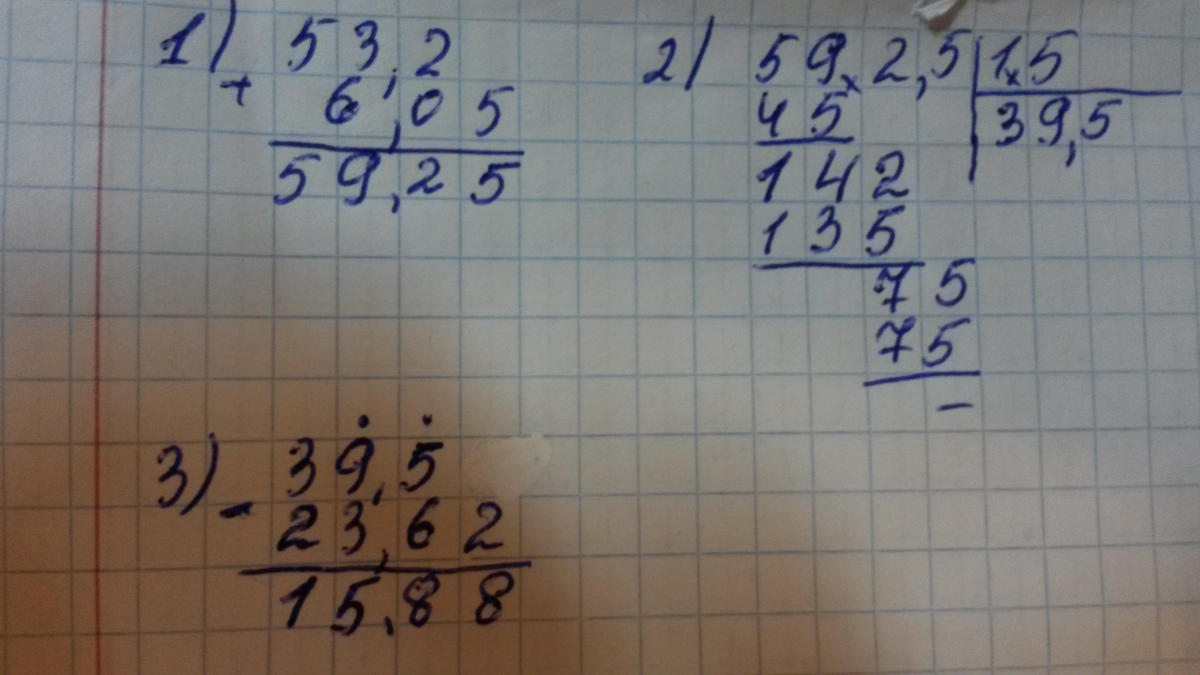 1) 53,2
+ 6,05
59,25
2) 59,2,5 | 1,5
45 | 39,5
142
135
75
75
–
3) 39,5
- 23,62
15,88